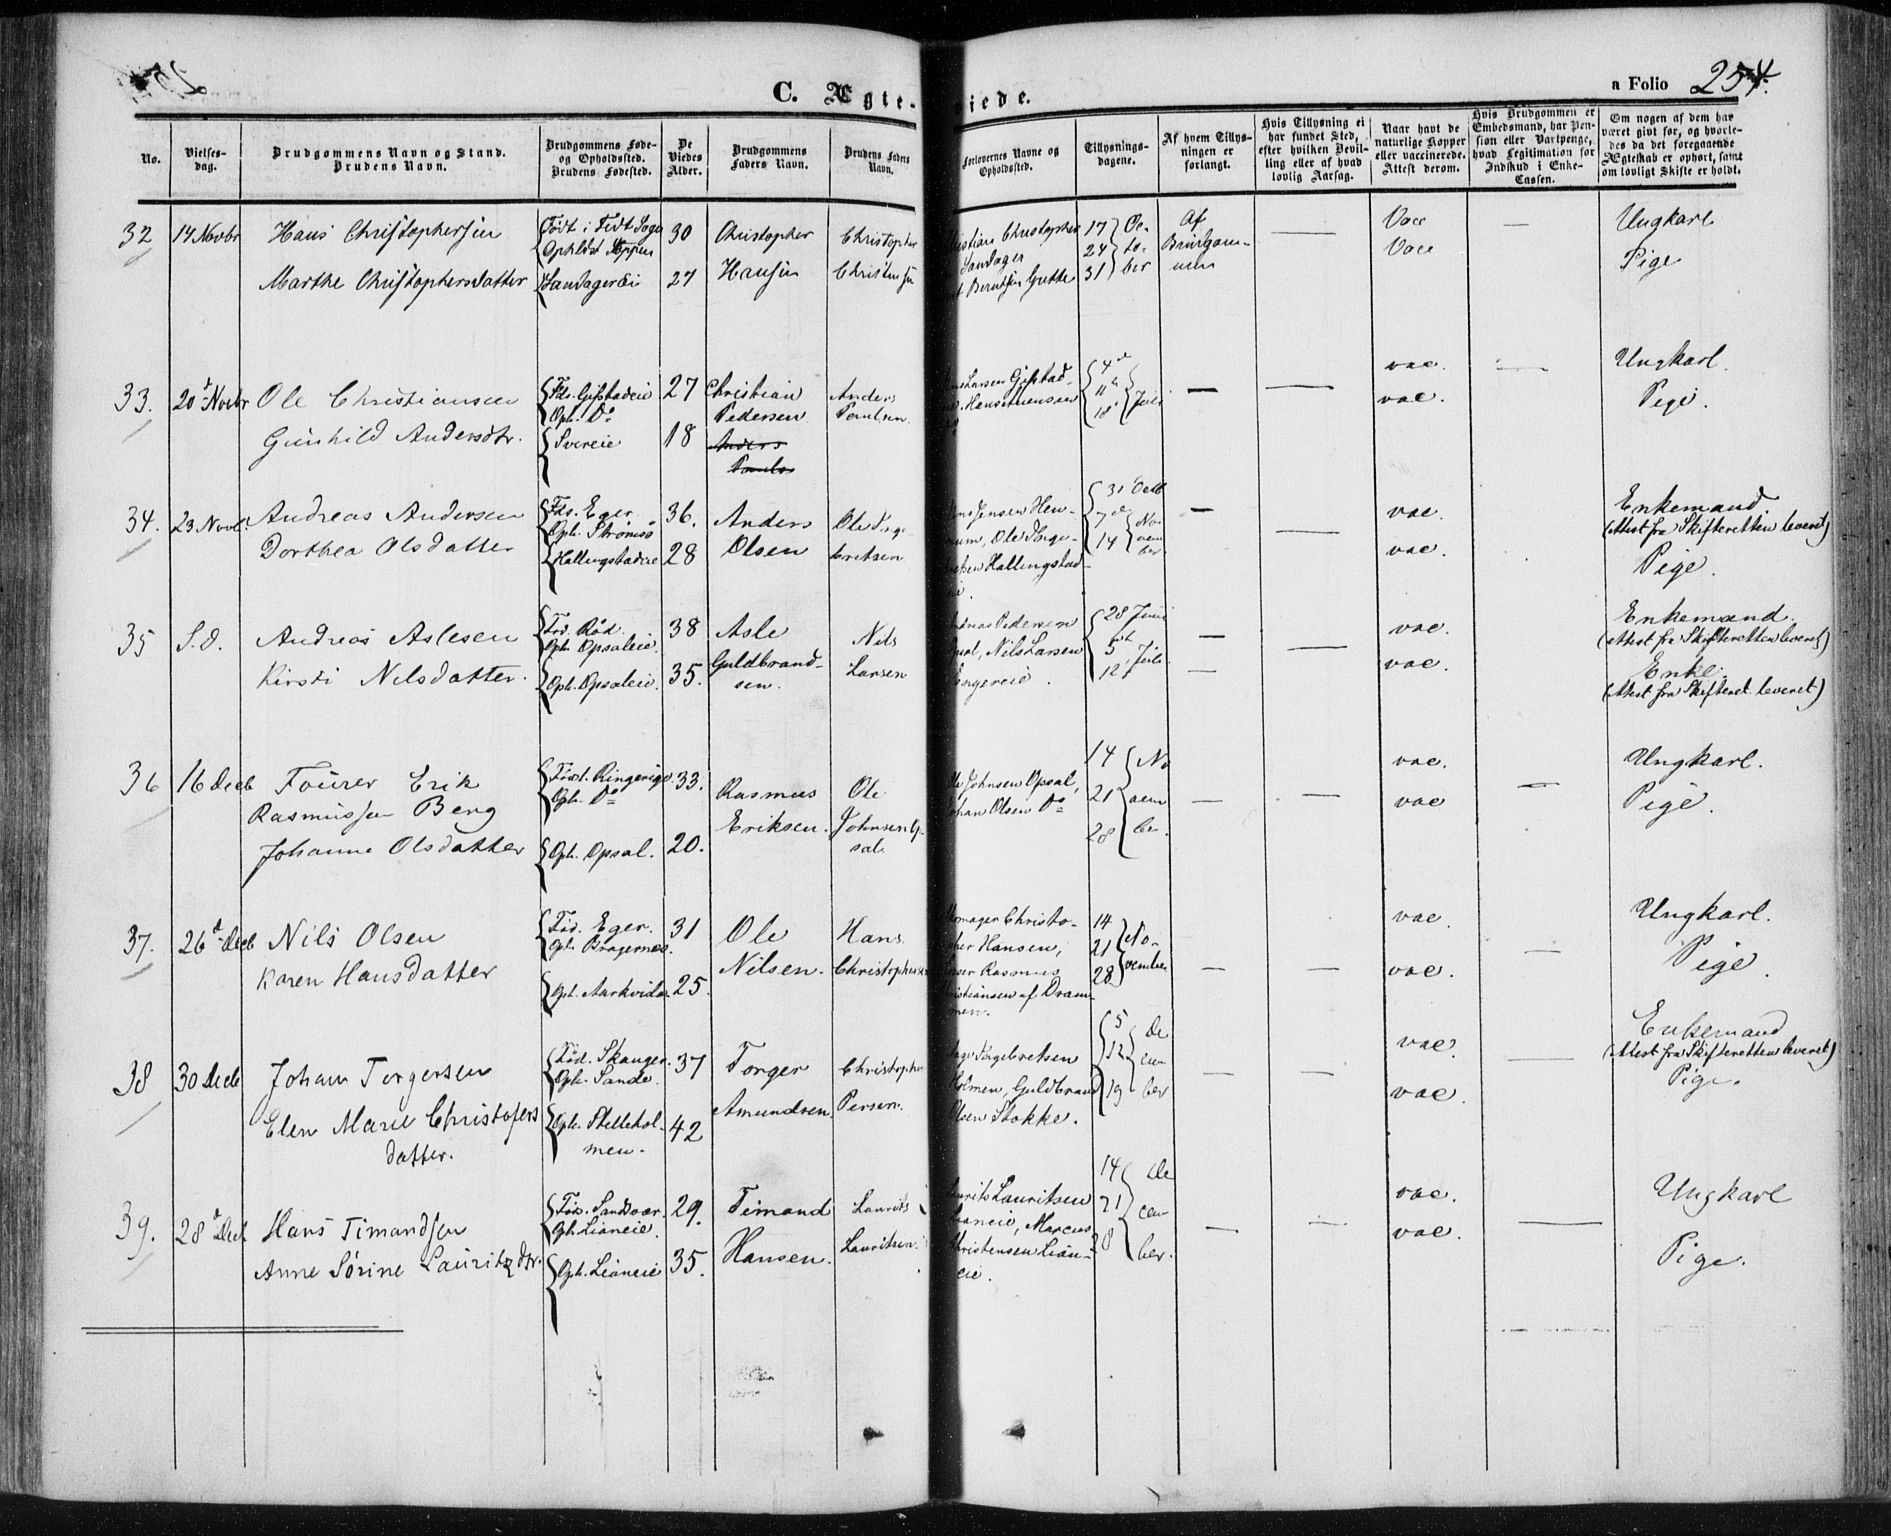 C. Ægte-
viede.
a Folio 254.
No.
Vielses-
dag.
Brudgommens Navn og Stand.
Brudens Navn.
Brudgommens Føde-
og Opholdssted.
Brudens Fødested.
De
Viedes
Alder.
Brudgommens
Faders Navn.
Brudens Faders
Navn.
Forlovernes Navne og
Opholdssted.
Tillysnings-
dagene.
Af hvem Tillys-
ningen er
forlangt.
Hvis Tillysning ei
har fundet Sted,
efter hvilken Bevil-
ling eller af hvad
lovlig Aarsag.
Naar havt de
naturlige Kopper
eller vaccinerede.
Attest derom.
Hvis Brudgommen er
Embedsmand, har Pen-
sion eller Vartpenge,
hvad Legitimation for
Indskud i Enke-
Cassen.
Om nogen af dem har
været givt før, og hvorle-
des da det foregaaende
Ægteskab er ophørt, samt
om lovligt Skifte er holdt.
32 14 Novbr Hans Christophersen
Født i
30 Christopher Hansen
Marthe Christophersdatter
Sandagerei 27
17 24 31 October
Af Brudgommen
Vacc
Vacc
Ungkarl
Pige
33. 20d Novbr Ole Christiansen
Fds. Gifstadeie
Oph. Do
27 Christian
Pedersen
Anders
Paulsen
Gunhild Andersdtr.
Svereie 18
Anders
Larsen Gifstad
4d
11te
18
Juli
vac.
vac.
Ungkarl.
Pige.
34. 23 Novbr. Andreas Andersen
Fds. Eger
Oph. Strømsø
36. Anders
Olsen
Dorthea Olsdatter
Hallingstadeie 28
Jensen Hen-
Ole Torge-
Hallingstad-
31 Octb
7de
14 November
vac.
vac.
Enkemand.
(Attest fra Skifteretten leveret)
Pige.
35 S.D. Andreas Aslesen
Fød. Rød
Oph. Opsaleie.
38 Asle
Guldbrand-
sen.
Nils
Larsen
Kirsti Nilsdatter.
Oph. Opsaleie. 35.
Pedersen
Nils Larsen
28 Juni
5te
12 Juli
vac.
vac.
Enkemand.
(Attest fra Skifteretten leveret)
Enke.
(Attest fra Skifteret. leveret)
36 16 Decb Fourer Erik
Rasmussen Berg
Født. Ringerige.
Oph. Do
33. Rasmus
Eriksen.
Ole
Johnsen Op-
sal.
Johanne Olsdatter
Oph. Opsal. 20.
Ole Johnsen Opsal,
Johan Olsen Do
14
21
28
November.
vac.
vac
Ungkarl.
Pige.
37. 26d Decb Nils Olsen
Fød. Eger.
Oph. Bragernes.
31 Ole
Nilsen.
Hans
Christophersen
Karen Hansdatter
Oph. Aarkvisla 25.
Christo-
pher Hansen,
Rasmus
Christiansen af Dram-
men.
14
21
28
November
vac.
vac.
Ungkarl.
Pige.
38 30 Decb Johan Torgersen
Fød. Skauger
Oph. Sande.
37 Torger
Amundsen
Christopher
Persen.
Elen Marie Christofers
datter.
Oph. Stellehol-
men. 42
Torgebretsen
Holmen, Guldbrand
Olsen Stokke.
5
12
19
December
vac.
vac.
Enkemand
(Attest fra Skifteretten leveret)
Pige.
39. 28d Decb Hans Timandsen
Fød. Sandsvær.
Oph. Lianeie.
29. Timand
Hansen.
Laurits
Lauritsen.
Anne Sørine Lauritzdtr.
Oph. Lianeie 35.
Laurits Lauritsen
Lianeie, Marcus
Christensen Lian-
eie.
14
21
28
December.
vac.
vac.
Ungkarl
Pige.